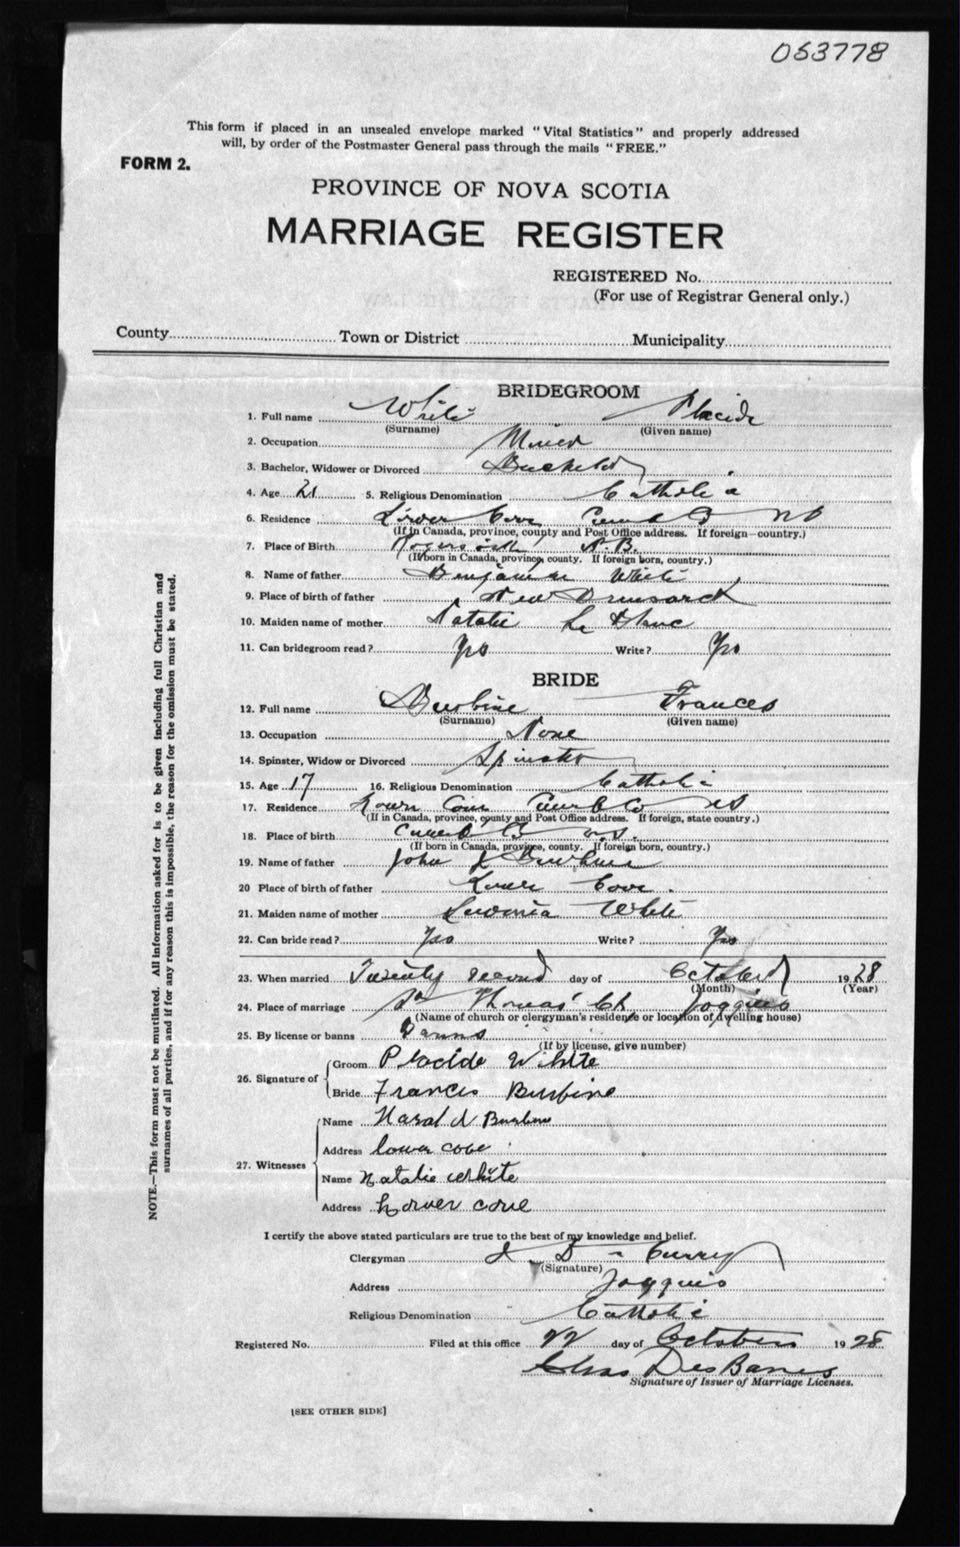 053778
This form if placed in an unsealed envelope marked "Vital Statistics" and properly addressed
will, by order of the Postmaster General pass through the mails "FREE."
FORM 2.
PROVINCE OF NOVA SCOTIA
MARRIAGE REGISTER
REGISTERED No.
(For use of Registrar General only.)
County Town or District Municipality
BRIDEGROOM
1. Full name White Placide
(Surname) (Given name)
2. Occupation Miner
3. Bachelor, Widower or Divorced Bachelor
4. Age 21 5. Religious Denomination Catholic
6. Residence Lower Cove Cumb Co NS
(If in Canada, province, county and Post Office address. If foreign—country.)
7. Place of Birth Rogersville N.B.
(If born in Canada, province, county. If foreign born, country.)
8. Name of father Benjamin White
9. Place of birth of father New Brunswick
10. Maiden name of mother Natalie Le Blanc
11. Can bridegroom read? Yes Write? Yes
BRIDE
12. Full name Burbine Frances
(Surname) (Given name)
13. Occupation None
14. Spinster, Widow or Divorced Spinster
15. Age 17 16. Religious Denomination Catholic
17. Residence Lower Cove Cumb Co NS
(If in Canada, province, county and Post Office address. If foreign, state country.)
18. Place of birth Cumb Co N.S.
(If born in Canada, province, county. If foreign born, country.)
19. Name of father John Burbine
20 Place of birth of father Lower Cove.
21. Maiden name of mother White
22. Can bride read? Yes Write? Yes
23. When married Twenty second day of October 1928
(Month) (Year)
24. Place of marriage St Thomas' Ch Joggins
(Name of church or clergyman's residence or location of dwelling house)
25. By license or banns Banns
(If by license, give number)
26. Signature of Groom Placide White
Bride Frances Burbine
27. Witnesses Name Harold Burbine
Address lower cove
Name Natalie White
Address Lower cove
I certify the above stated particulars are true to the best of my knowledge and belief.
Clergyman J D Curry
(Signature)
Address Joggins
Religious Denomination Catholic
Registered No. Filed at this office 22 day of October 1928
Chas DesBarres
Signature of Issuer of Marriage Licenses.
[SEE OTHER SIDE]
NOTE.—This form must not be mutilated. All information asked for is to be given including full Christian and
surnames of all parties, and if for any reason this is impossible, the reason for the omission must be stated.